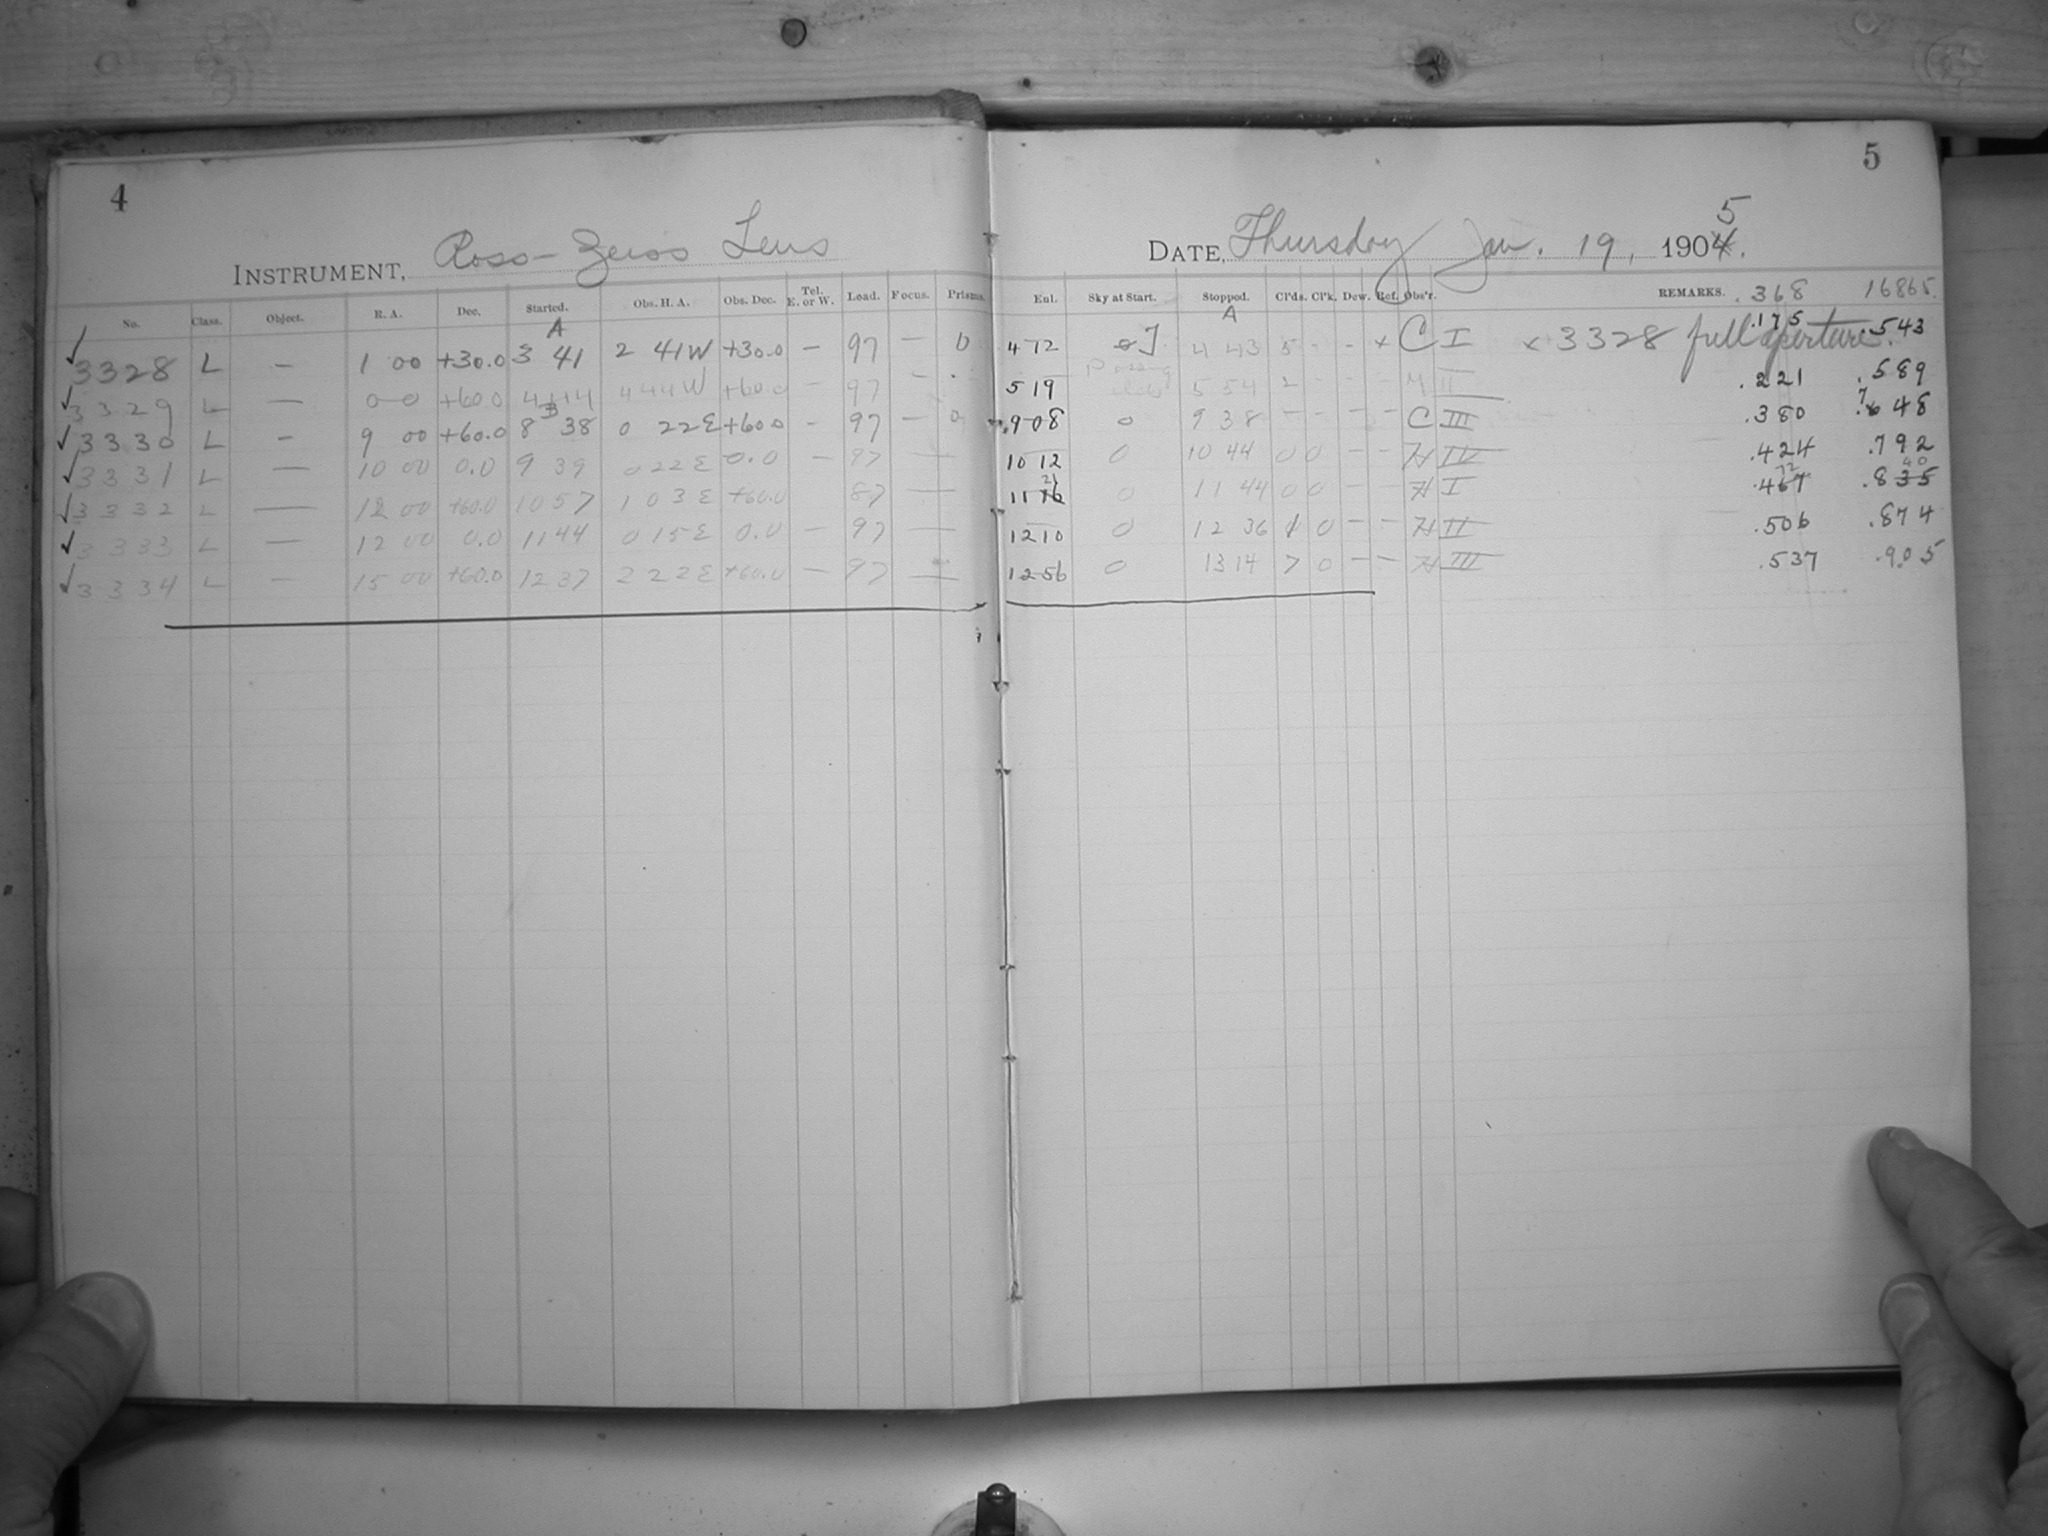 4
INSTRUMENT, Ross-Zeiss Lens
No. Class. Object. R. A. Dec. Started. Obs. H. A. Obs. Dec. Tel. E. or W. Load. Focus. Prisms.
A
✓ 3328 L — 1 00 +30.0 3 41 2 41 W +30.0 — 97 — 0
✓ 3329 L — 0 0 +60.0 4 44 W +60.0 — 97 —
✓ 3330 L — 9 00 +60.0 8 38 0 22 E +60.0 — 97 — 0
✓ 3331 L — 10 00 0.0 9 39 0 22 E 0.0 — 97 —
✓ 3332 L — 12 00 +60.0 10 57 1 03 E +60.0 87 —
✓ 3333 L — 12 00 0.0 11 44 0 15 E 0.0 — 97 —
✓ 3334 L — 15 00 +60.0 12 37 2 22 E +60.0 — 97 —
5
DATE, Thursday Jan. 19, 1904. 5
Eul. Sky at Start. Stopped. Cl'ds. Cl'k. Dew. Ref. Obs'r. REMARKS. .368 16865.
A
4 12 4 43 5 - - x C I x 3328 full aperture. .175 .543
5 19 5 54 2 - - - II .221 .589
9 08 0 9 38 - - - - C III .380 .748
10 12 0 10 44 0 0 - - H IV .424 .792
11 16 21 0 11 44 0 0 - - H I .467 72 .835 40
12 10 0 12 36 1 0 - - H II .506 .874
12 56 0 13 14 7 0 - - H III .537 .905